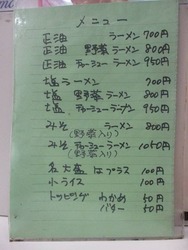 メニュー
正油 ラーメン 700円
正油 野菜ラーメン 800円
正油 チャーシューラーメン 950円
塩ラーメン 700円
塩 野菜ラーメン 800円
塩 チャーシューラーメン 950円
みそ ラーメン 800円
(野菜入り)
みそ チャーシューラーメン 1050円
(野菜入り)
各大盛はプラス 100円
小ライス 100円
トッピング わかめ 50円
バター 50円